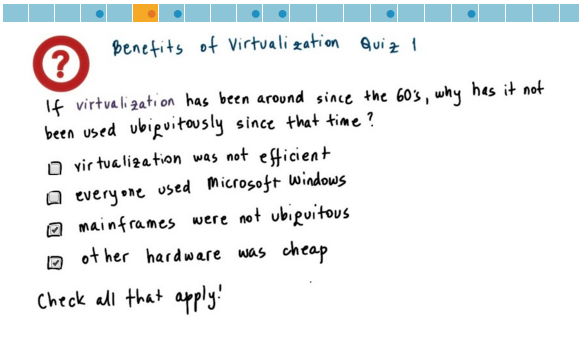 ?
Benefits of Virtualization Quiz 1
If virtualization has been around since the 60's, why has it not
been used ubiquitously since that time?
virtualization was not efficient
everyone used Microsoft Windows
mainframes were not ubiquitous
other hardware was cheap
Check all that apply!